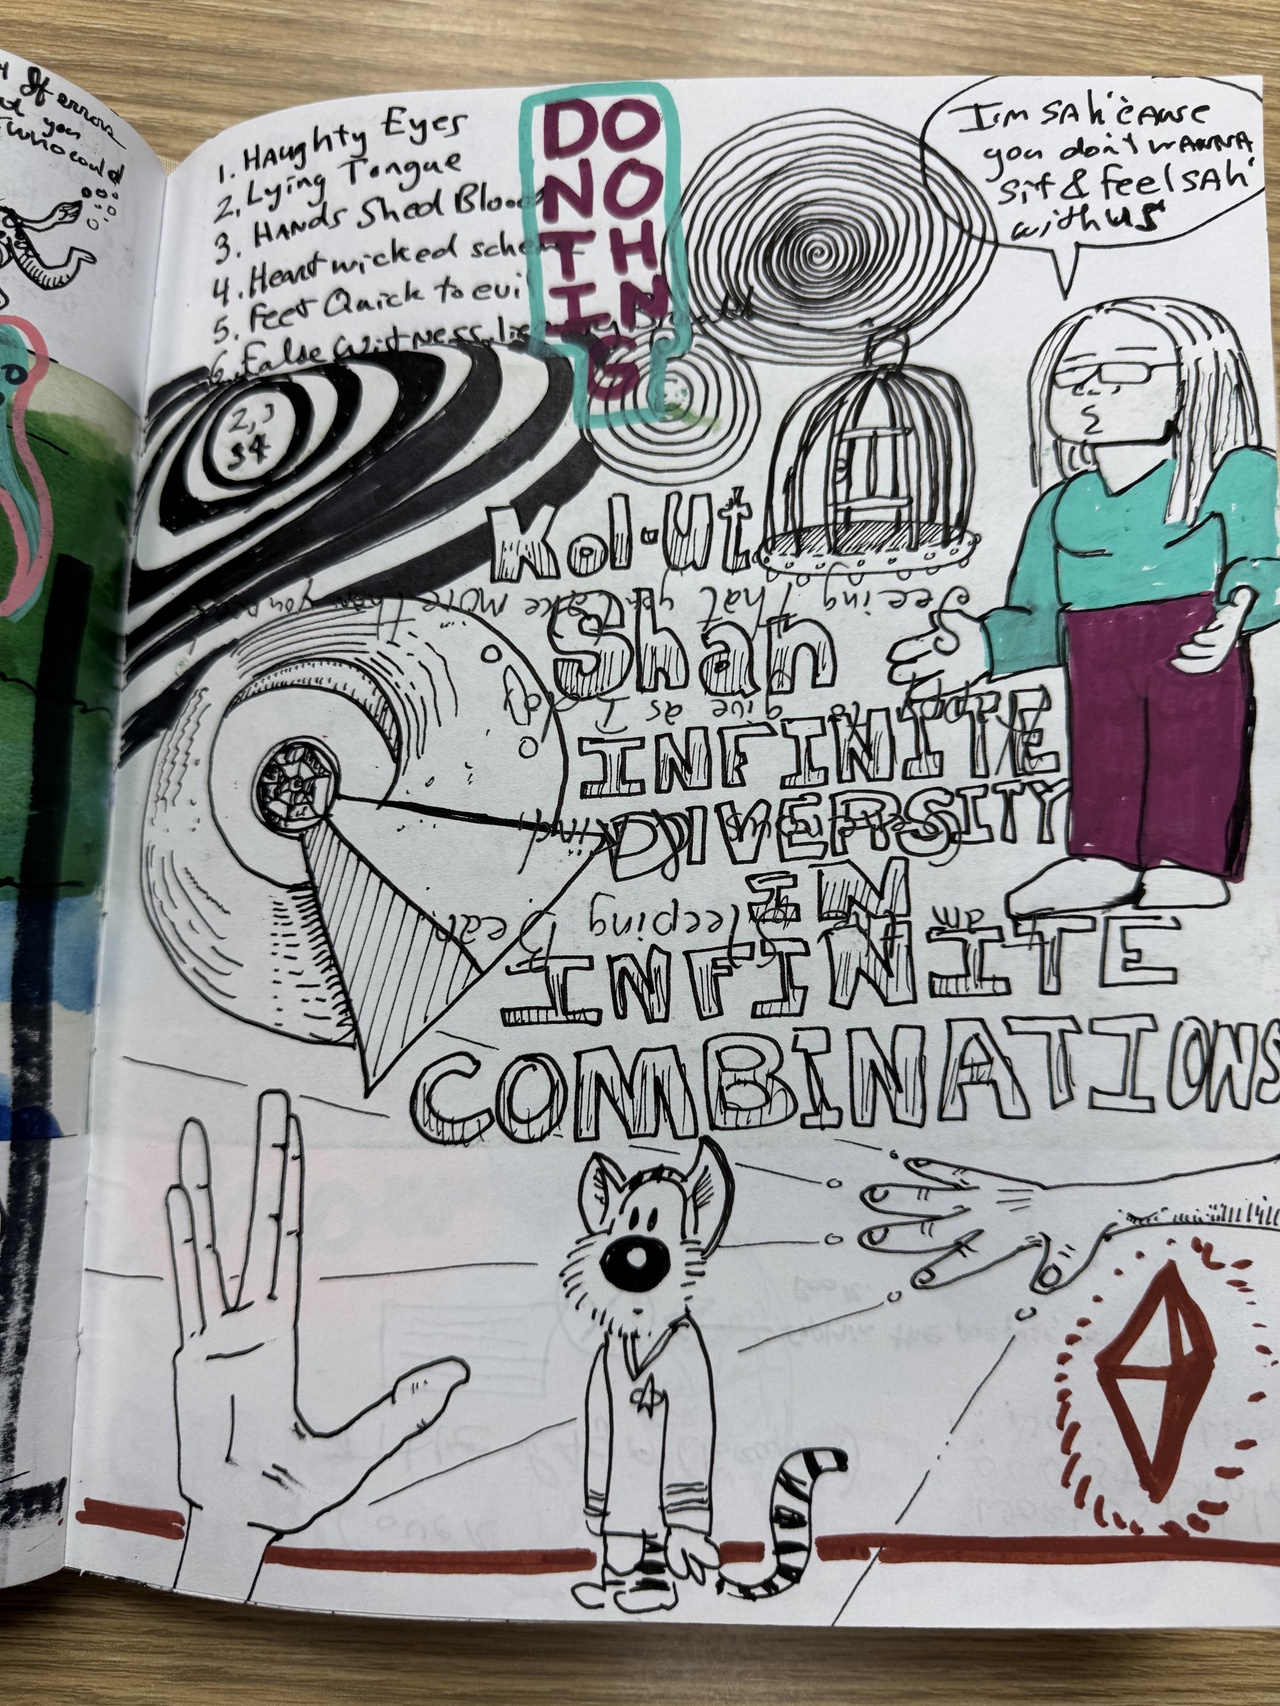 If errors
you
who could
1. Haughty Eyes
2. Lying Tongue
3. Hands Shed Blood
4. Heart wicked sche
5. Feet Quick to evil
6. False Witness
DO
NO
TH
IN
G
I'm SAh 'cause
you don't wanna
sit & feel SAh'
with us
2, 3
Kol-Ut
Shan
seeing that you take more than you need
INFINITE
give as I
DIVERSITY
kind
IN
sleeping Bear
am
INFINITE
COMBINATIONS